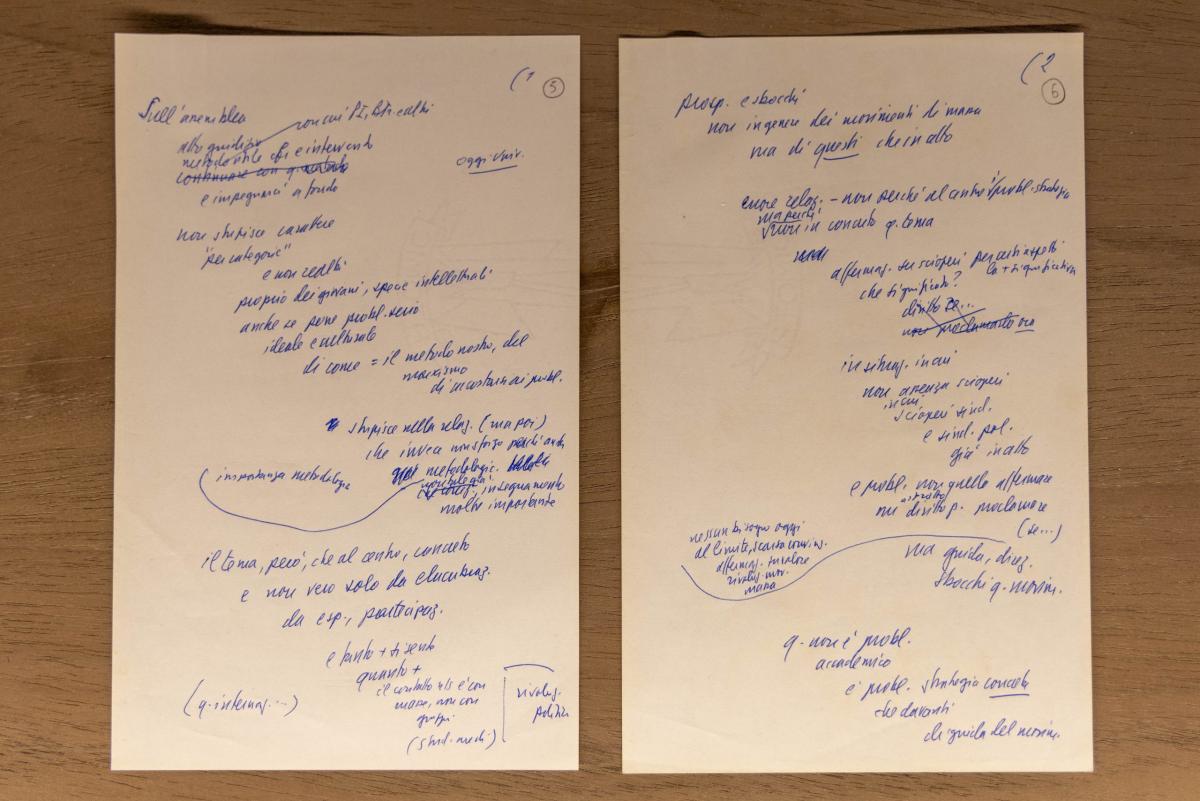 (1
5
Sull'assemblea
con cui PI, Btr. ed altri
altro giudizio
metodo utile chi è intervenuto
oggi univ.
e impegnarci a fondo
non stupisce carattere
"per categorie"
e non realtà
proprio dei giovani, specie intellettuali
anche se pone probl. serio
ideale e culturale
di come = il metodo nostro, del
marxismo
di accostarsi ai probl.
stupisce nella relaz. (ma poi)
che invece non sforzo perché anche
metodologic.
insegnamento
molto importante
(importanza metodologic
il tema, però, che al centro, concreto
e non vero solo da elucubraz.
da esp., partecipaz.
e tanto + si sente
quanto +
il contatto è con
masse, non con
gruppi
(stud. medi)
(q. internaz...)
rivoluz.
politica
(2
6
prosp. e sbocchi
non in genere dei movimenti di massa
ma di questi che in atto
errore relaz. - non perché al centro probl. strategia
ma perché
non in concreto q. tema
affermaz. su scioperi per certi aspetti
la + significativa
che significato?
diritto se...
non proclamato ora
in situaz. in cui
non assenza scioperi
in cui
scioperi sind.
e sind. pol.
già in atto
e probl. non quello affermare
astratto
un diritto p. proclamare
(se...)
nessun bisogno oggi
al limite, scarsa convinz.
affermaz. su valore
rivoluz. mov.
massa
ma guida, direz.
sbocchi q. movim.
q. non è probl.
accademico
è probl. strategia concreta
che davanti
di guida del movim.